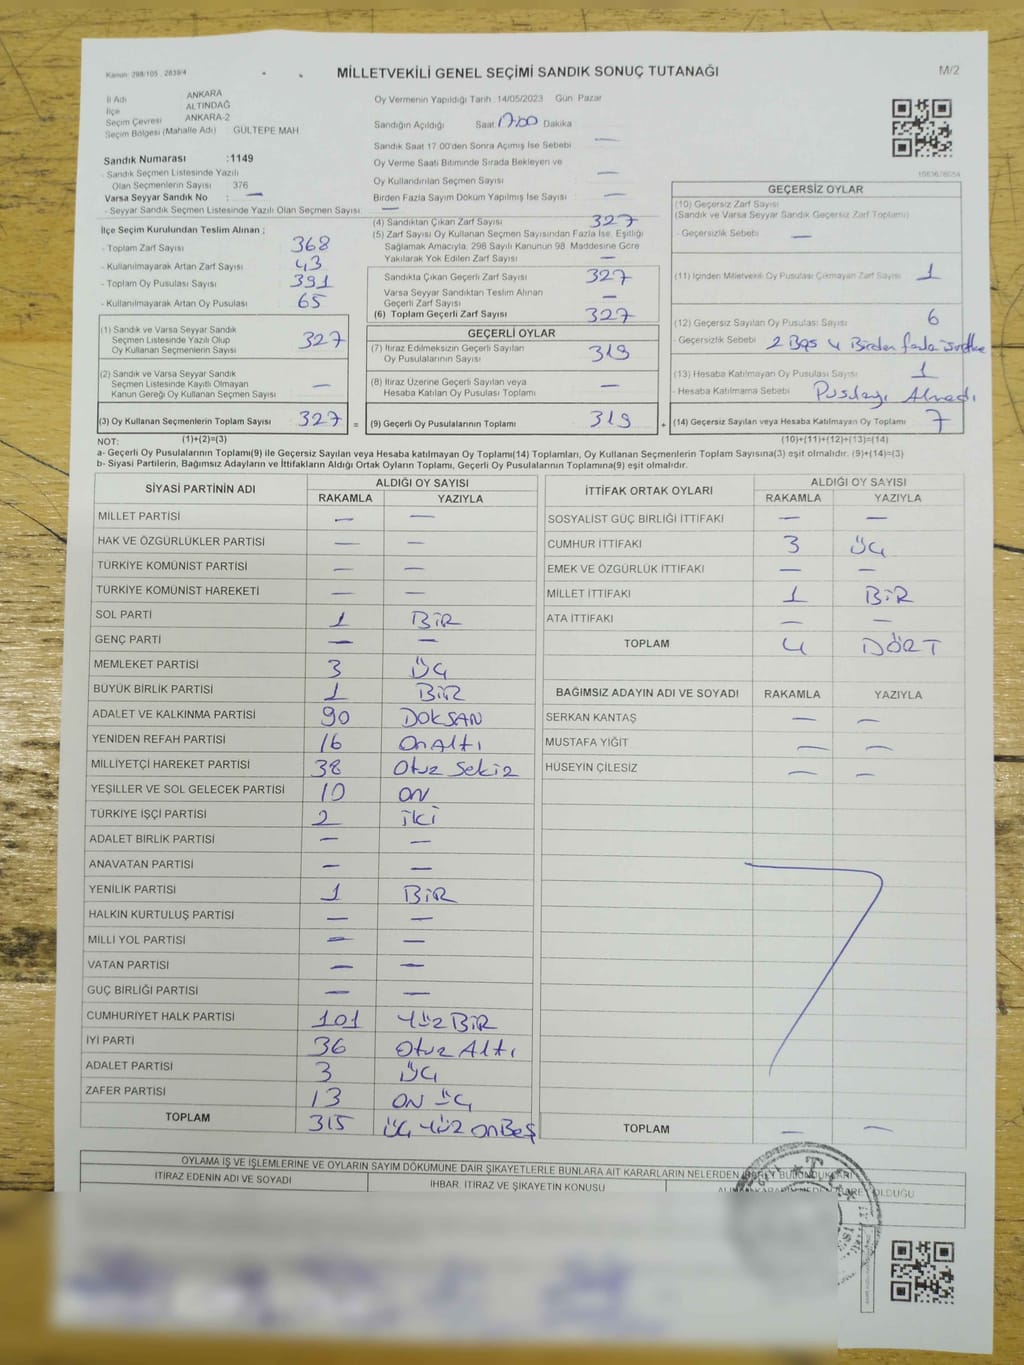 Kanun: 298/105 , 2839/4
MİLLETVEKİLİ GENEL SEÇİMİ SANDIK SONUÇ TUTANAĞI
M/2
İl Adı ANKARA
İlçe ALTINDAĞ
Seçim Çevresi ANKARA-2
Seçim Bölgesi (Mahalle Adı) GÜLTEPE MAH
Sandık Numarası :1149
- Sandık Seçmen Listesinde Yazılı
Olan Seçmenlerin Sayısı 376
Varsa Seyyar Sandık No —
- Seyyar Sandık Seçmen Listesinde Yazılı Olan Seçmen Sayısı: —
İlçe Seçim Kurulundan Teslim Alınan ;
- Toplam Zarf Sayısı 368
- Kullanılmayarak Artan Zarf Sayısı 43
- Toplam Oy Pusulası Sayısı 391
- Kullanılmayarak Artan Oy Pusulası 65
(1) Sandık ve Varsa Seyyar Sandık
Seçmen Listesinde Yazılı Olup
Oy Kullanan Seçmenlerin Sayısı 327
(2) Sandık ve Varsa Seyyar Sandık
Seçmen Listesinde Kayıtlı Olmayan
Kanun Gereği Oy Kullanan Seçmen Sayısı —
(3) Oy Kullanan Seçmenlerin Toplam Sayısı 327 =
Oy Vermenin Yapıldığı Tarih 14/05/2023 Gün Pazar
Sandığın Açıldığı Saat 17:00 Dakika
Sandık Saat 17.00'den Sonra Açımış İse Sebebi —
Oy Verme Saati Bitiminde Sırada Bekleyen ve
Oy Kullandırılan Seçmen Sayısı —
Birden Fazla Sayım Döküm Yapılmış İse Sayısı —
(4) Sandıktan Çıkan Zarf Sayısı 327
(5) Zarf Sayısı Oy Kullanan Seçmen Sayısından Fazla İse, Eşitliği
Sağlamak Amacıyla, 298 Sayılı Kanunun 98. Maddesine Göre
Yakılarak Yok Edilen Zarf Sayısı —
Sandıkta Çıkan Geçerli Zarf Sayısı 327
Varsa Seyyar Sandıktan Teslim Alınan
Geçerli Zarf Sayısı —
(6) Toplam Geçerli Zarf Sayısı 327
GEÇERLİ OYLAR
(7) İtiraz Edilmeksizin Geçerli Sayılan
Oy Pusulalarının Sayısı 319
(8) İtiraz Üzerine Geçerli Sayılan veya
Hesaba Katılan Oy Pusulası Sayısı —
(9) Geçerli Oy Pusulalarının Toplamı 319 +
1083678054
GEÇERSİZ OYLAR
(10) Geçersiz Zarf Sayısı
(Sandık ve Varsa Seyyar Sandık Geçersiz Zarf Toplamı)
- Geçersizlik Sebebi —
(11) İçinden Milletvekili Oy Pusulası Çıkmayan Zarf Sayısı 1
(12) Geçersiz Sayılan Oy Pusulası Sayısı 6
- Geçersizlik Sebebi 2 Boş 4 Birden fazla
(13) Hesaba Katılmayan Oy Pusulası Sayısı 1
- Hesaba Katılmama Sebebi Pusulayı Almadı
(14) Geçersiz Sayılan veya Hesaba Katılmayan Oy Toplamı 7
NOT: (1)+(2)=(3) (10)+(11)+(12)+(13)=(14)
a- Geçerli Oy Pusulalarının Toplamı(9) ile Geçersiz Sayılan veya Hesaba katılmayan Oy Toplamı(14) Toplamları, Oy Kullanan Seçmenlerin Toplam Sayısına(3) eşit olmalıdır. (9)+(14)=(3)
b- Siyasi Partilerin, Bağımsız Adayların ve İttifakların Aldığı Ortak Oyların Toplamı, Geçerli Oy Pusulalarının Toplamına(9) eşit olmalıdır.
SİYASİ PARTİNİN ADI ALDIĞI OY SAYISI
RAKAMLA YAZIYLA
MİLLET PARTİSİ — —
HAK VE ÖZGÜRLÜKLER PARTİSİ — —
TÜRKİYE KOMÜNİST PARTİSİ — —
TÜRKİYE KOMÜNİST HAREKETİ — —
SOL PARTİ 1 BİR
GENÇ PARTİ — —
MEMLEKET PARTİSİ 3 ÜÇ
BÜYÜK BİRLİK PARTİSİ 1 BİR
ADALET VE KALKINMA PARTİSİ 90 DOKSAN
YENİDEN REFAH PARTİSİ 16 OnAltı
MİLLİYETÇİ HAREKET PARTİSİ 38 Otuz Sekiz
YEŞİLLER VE SOL GELECEK PARTİSİ 10 ON
TÜRKİYE İŞÇİ PARTİSİ 2 İki
ADALET BİRLİK PARTİSİ — —
ANAVATAN PARTİSİ — —
YENİLİK PARTİSİ 1 BİR
HALKIN KURTULUŞ PARTİSİ — —
MİLLİ YOL PARTİSİ — —
VATAN PARTİSİ — —
GÜÇ BİRLİĞİ PARTİSİ — —
CUMHURİYET HALK PARTİSİ 101 YÜZ BİR
İYİ PARTİ 36 Otuz Altı
ADALET PARTİSİ 3 ÜÇ
ZAFER PARTİSİ 13 ON ÜÇ
TOPLAM 315 ÜÇ YÜZ OnBeş
İTTİFAK ORTAK OYLARI ALDIĞI OY SAYISI
RAKAMLA YAZIYLA
SOSYALİST GÜÇ BİRLİĞİ İTTİFAKI — —
CUMHUR İTTİFAKI 3 ÜÇ
EMEK VE ÖZGÜRLÜK İTTİFAKI — —
MİLLET İTTİFAKI 1 BİR
ATA İTTİFAKI — —
TOPLAM 4 DÖRT
BAĞIMSIZ ADAYIN ADI VE SOYADI RAKAMLA YAZIYLA
SERKAN KANTAŞ — —
MUSTAFA YİĞİT — —
HÜSEYİN ÇİLESİZ — —
TOPLAM — —
OYLAMA İŞ VE İŞLEMLERİNE VE OYLARIN SAYIM DÖKÜMÜNE DAİR ŞİKAYETLERLE BUNLARA AİT KARARLARIN NELERDEN İBARET BULUNDUKLARI
İTİRAZ EDENİN ADI VE SOYADI İHBAR, İTİRAZ VE ŞİKAYETİN KONUSU OLDUĞU